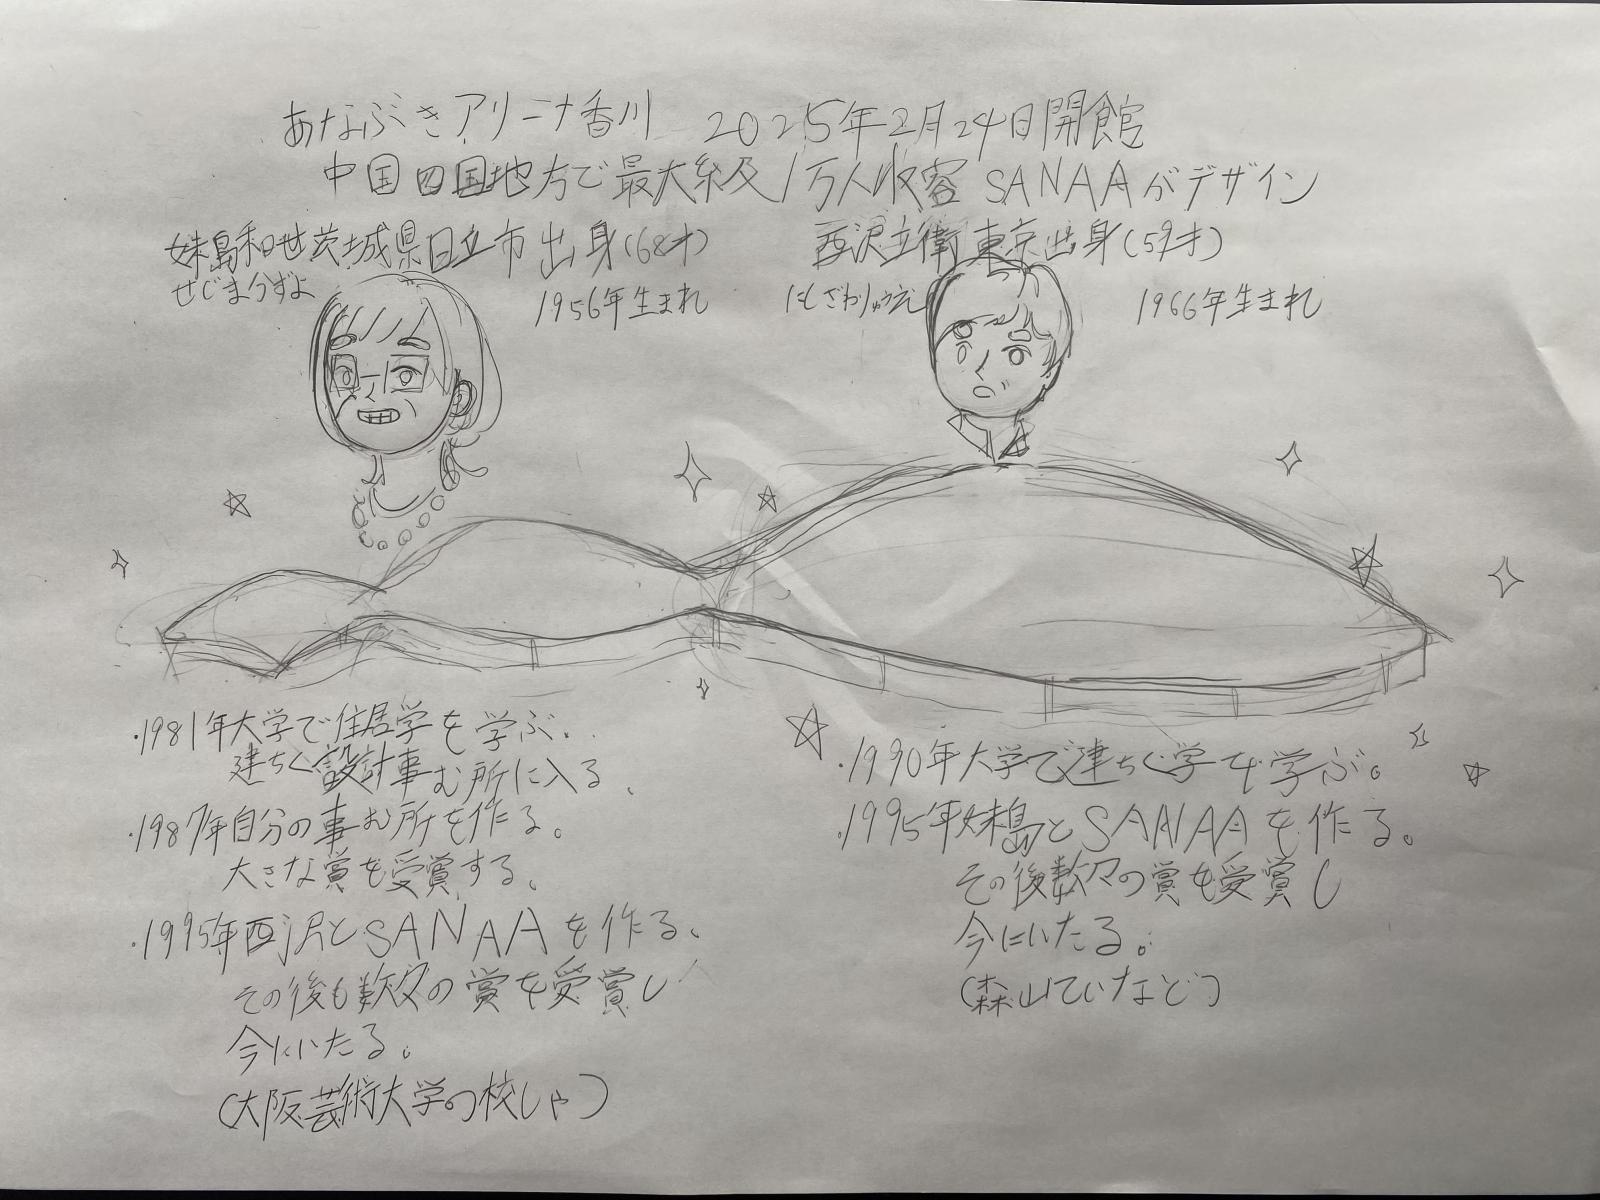 あなぶきアリーナ香川 2025年2月24日開館
中国四国地方で最大級及1万人収容 SANAAがデザイン
妹島和世茨城県日立市出身(68才)
せじまかずよ
1956年生まれ
西沢立衛 東京出身(59才)
にしざわりゅうえ
1966年生まれ
・1981年大学で住居学を学ぶ。
建ちく設計事む所に入る。
・1987年自分の事む所を作る。
大きな賞を受賞する。
・1995年西沢とSANAAを作る。
その後も数々の賞を受賞し
今にいたる。
(大阪芸術大学の校しゃ)
・1990年大学で建ちく学を学ぶ。
・1995年妹島とSANAAを作る。
その後数々の賞を受賞し
今にいたる。
(森山ていなど)